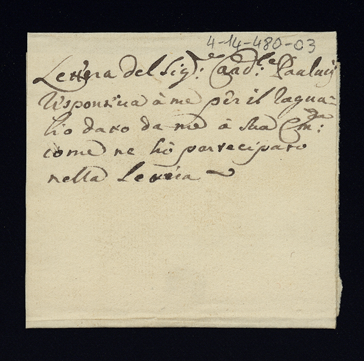 4-14-480-03
Lettera del Sig.e Card.le Paulucci
risponsiua à me per il raqua-
lio dato da me à sua Em.za
come ne hò partecipato
nella